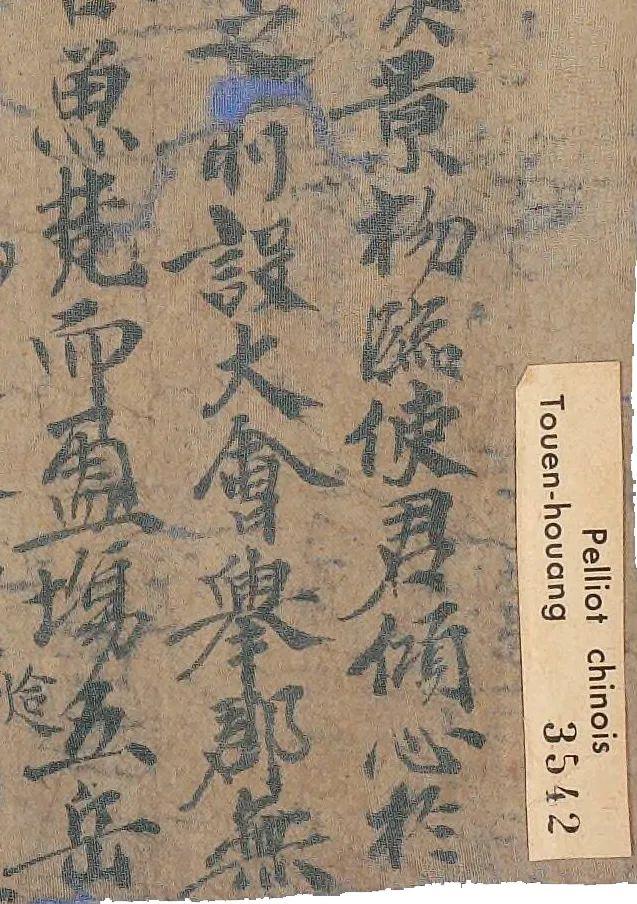 景物臨使君傾心於
之前設大會舉郡無
魚梵而盈塲五岳
Pelliot chinois
Touen-houang
3542